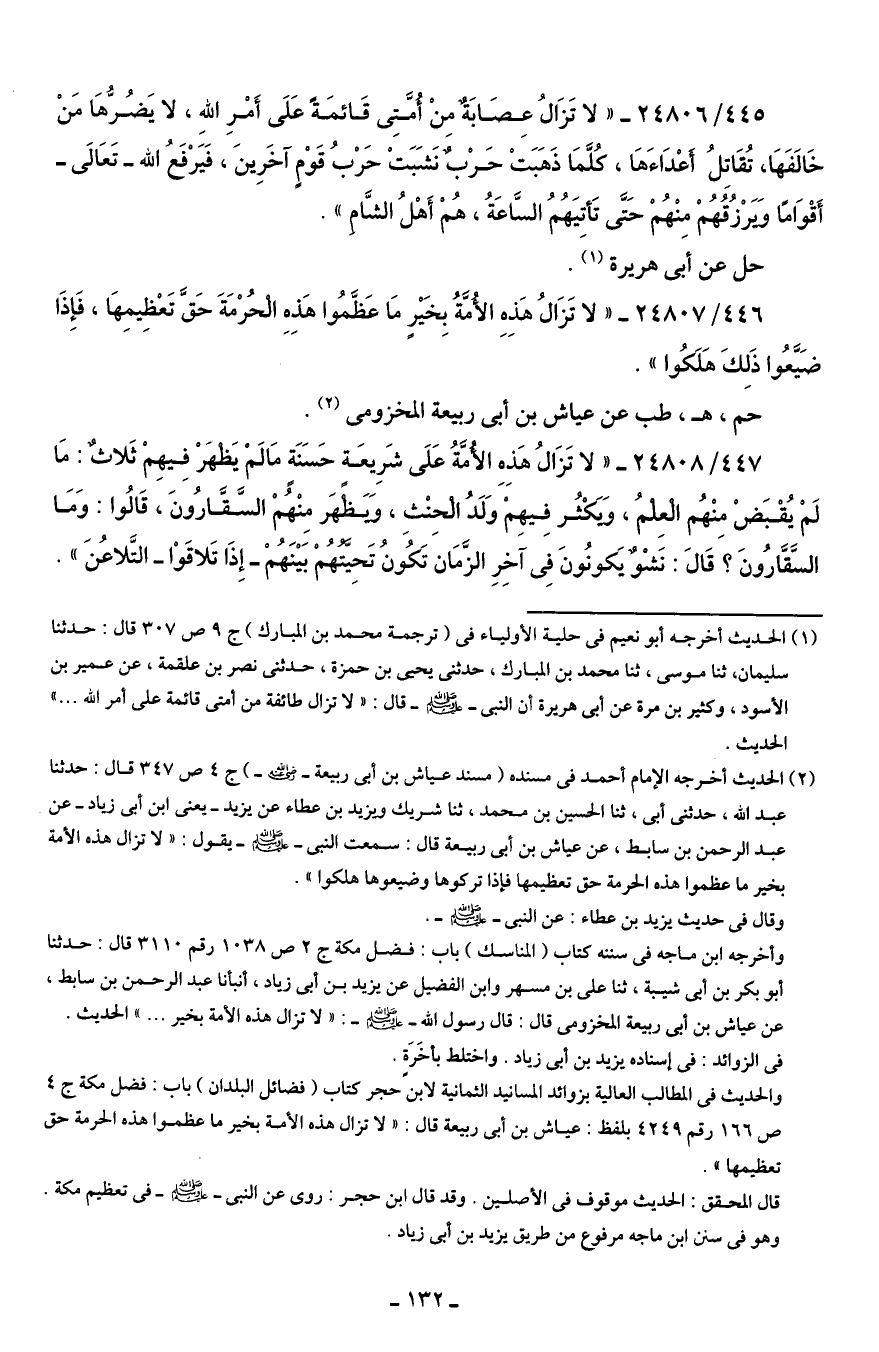 ٤٤٥/ ٢٤٨٠٦ ـ « لا تَزَالُ عِصَابَةٌ مِنْ أُمَّتِى قَائِمَةً عَلَى أَمْرِ اللهِ ، لا يَضُرُّهَا مَنْ
خَالَفَهَا، تُقَاتِلُ أَعْدَاءَهَا ، كُلَّمَا ذَهَبَتْ حَرْبٌ نَشَبَتْ حَرْبُ قَوْمٍ آخَرِينَ ، فَيَرْفَعُ الله ـ تَعَالَى ـ
أَقْوَامًا وَيَرْزُقُهُمْ مِنْهُمْ حَتَّى تَأتِيَهُمُ السَّاعَةُ ، هُمْ أَهْلُ الشَّامِ » .
حل عن أبى هريرة (١) .
٤٤٦/ ٢٤٨٠٧ ـ « لا تَزَالُ هَذِهِ الأُمَّةُ بِخَيْرٍ مَا عَظَّمُوا هَذِهِ الْحُرْمَةَ حَقَّ تَعْظِيمِهَا ، فَإِذَا
ضَيَّعُوا ذَلِكَ هَلَكُوا » .
حم ، هـ ، طب عن عياش بن أبى ربيعة المخزومى (٢) .
٤٤٧/ ٢٤٨٠٨ ـ « لا تَزَالُ هَذِهِ الأُمَّةُ عَلَى شَرِيعَةٍ حَسَنَةٍ مَالَمْ يَظْهَرْ فِيهِمْ ثَلاثٌ : مَا
لَمْ يُقْبَضْ مِنْهُم الْعِلمُ ، وَيَكْثُر فِيهِمْ وَلَدُ الْحِنْثِ ، وَيَظْهَر مِنْهُمْ السَّقَّارُونَ ، قَالُوا : وَمَا
السَّقَّارُونَ ؟ قَالَ : نَشْوٌ يَكونُونَ فِى آخِرِ الزَّمَانِ تَكُونُ تَحِيَّتُهُمْ بَيْنَهُمْ ـ إِذَا تَلاقَوْا ـ التَّلاعُنَ » .
(١) الحديث أخرجه أبو نعيم فى حلية الأولياء فى ( ترجمة محمد بن المبارك ) ج ٩ ص ٣٠٧ قال : حدثنا
سليمان، ثنا موسى ، ثنا محمد بن المبارك ، حدثنى يحيى بن حمزة ، حدثنى نصر بن علقمة ، عن عمير بن
الأسود ، وكثير بن مرة عن أبى هريرة أن النبى ـ ﷺ ـ قال : « لا تزال طائفة من أمتى قائمة على أمر الله ...»
الحديث .
(٢) الحديث أخرجه الإمام أحمد فى مسنده ( مسند عياش بن أبى ربيعة ـ رضي الله عنه ـ ) ج ٤ ص ٣٤٧ قال : حدثنا
عبد الله ، حدثنى أبى ، ثنا الحسين بن محمد ، ثنا شريك ويزيد بن عطاء عن يزيد ـ يعنى ابن أبى زياد ـ عن
عبد الرحمن بن سابط ، عن عياش بن أبى ربيعة قال : سمعت النبى ـ ﷺ ـ يقول : « لا تزال هذه الأمة
بخير ما عظموا هذه الحرمة حق تعظيمها فإذا تركوها وضيعوها هلكوا » .
وقال فى حديث يزيد بن عطاء : عن النبى ـ ﷺ ـ .
وأخرجه ابن ماجه فى سننه كتاب ( المناسك ) باب : فضل مكة ج ٢ ص ١٠٣٨ رقم ٣١١٠ قال : حدثنا
أبو بكر بن أبى شيبة ، ثنا على بن مسهر وابن الفضيل عن يزيد بن أبى زياد ، أنبأنا عبد الرحمن بن سابط ،
عن عياش بن أبى ربيعة المخزومى قال : قال رسول الله ـ ﷺ ـ : « لا تزال هذه الأمة بخير ... » الحديث .
فى الزوائد : فى إسناده يزيد بن أبى زياد . واختلط بأَخَرَةٍ .
والحديث فى المطالب العالية بزوائد المسانيد الثمانية لابن حجر كتاب ( فضائل البلدان ) باب : فضل مكة ج ٤
ص ١٦٦ رقم ٤٢٤٩ بلفظ : عياش بن أبى ربيعة قال : « لا تزال هذه الأمة بخير ما عظموا هذه الحرمة حق
تعظيمها » .
قال المحقق : الحديث موقوف فى الأصلين . وقد قال ابن حجر : روى عن النبى ـ ﷺ ـ فى تعظيم مكة .
وهو فى سنن ابن ماجه مرفوع من طريق يزيد بن أبى زياد .
ـ ١٣٢ ـ